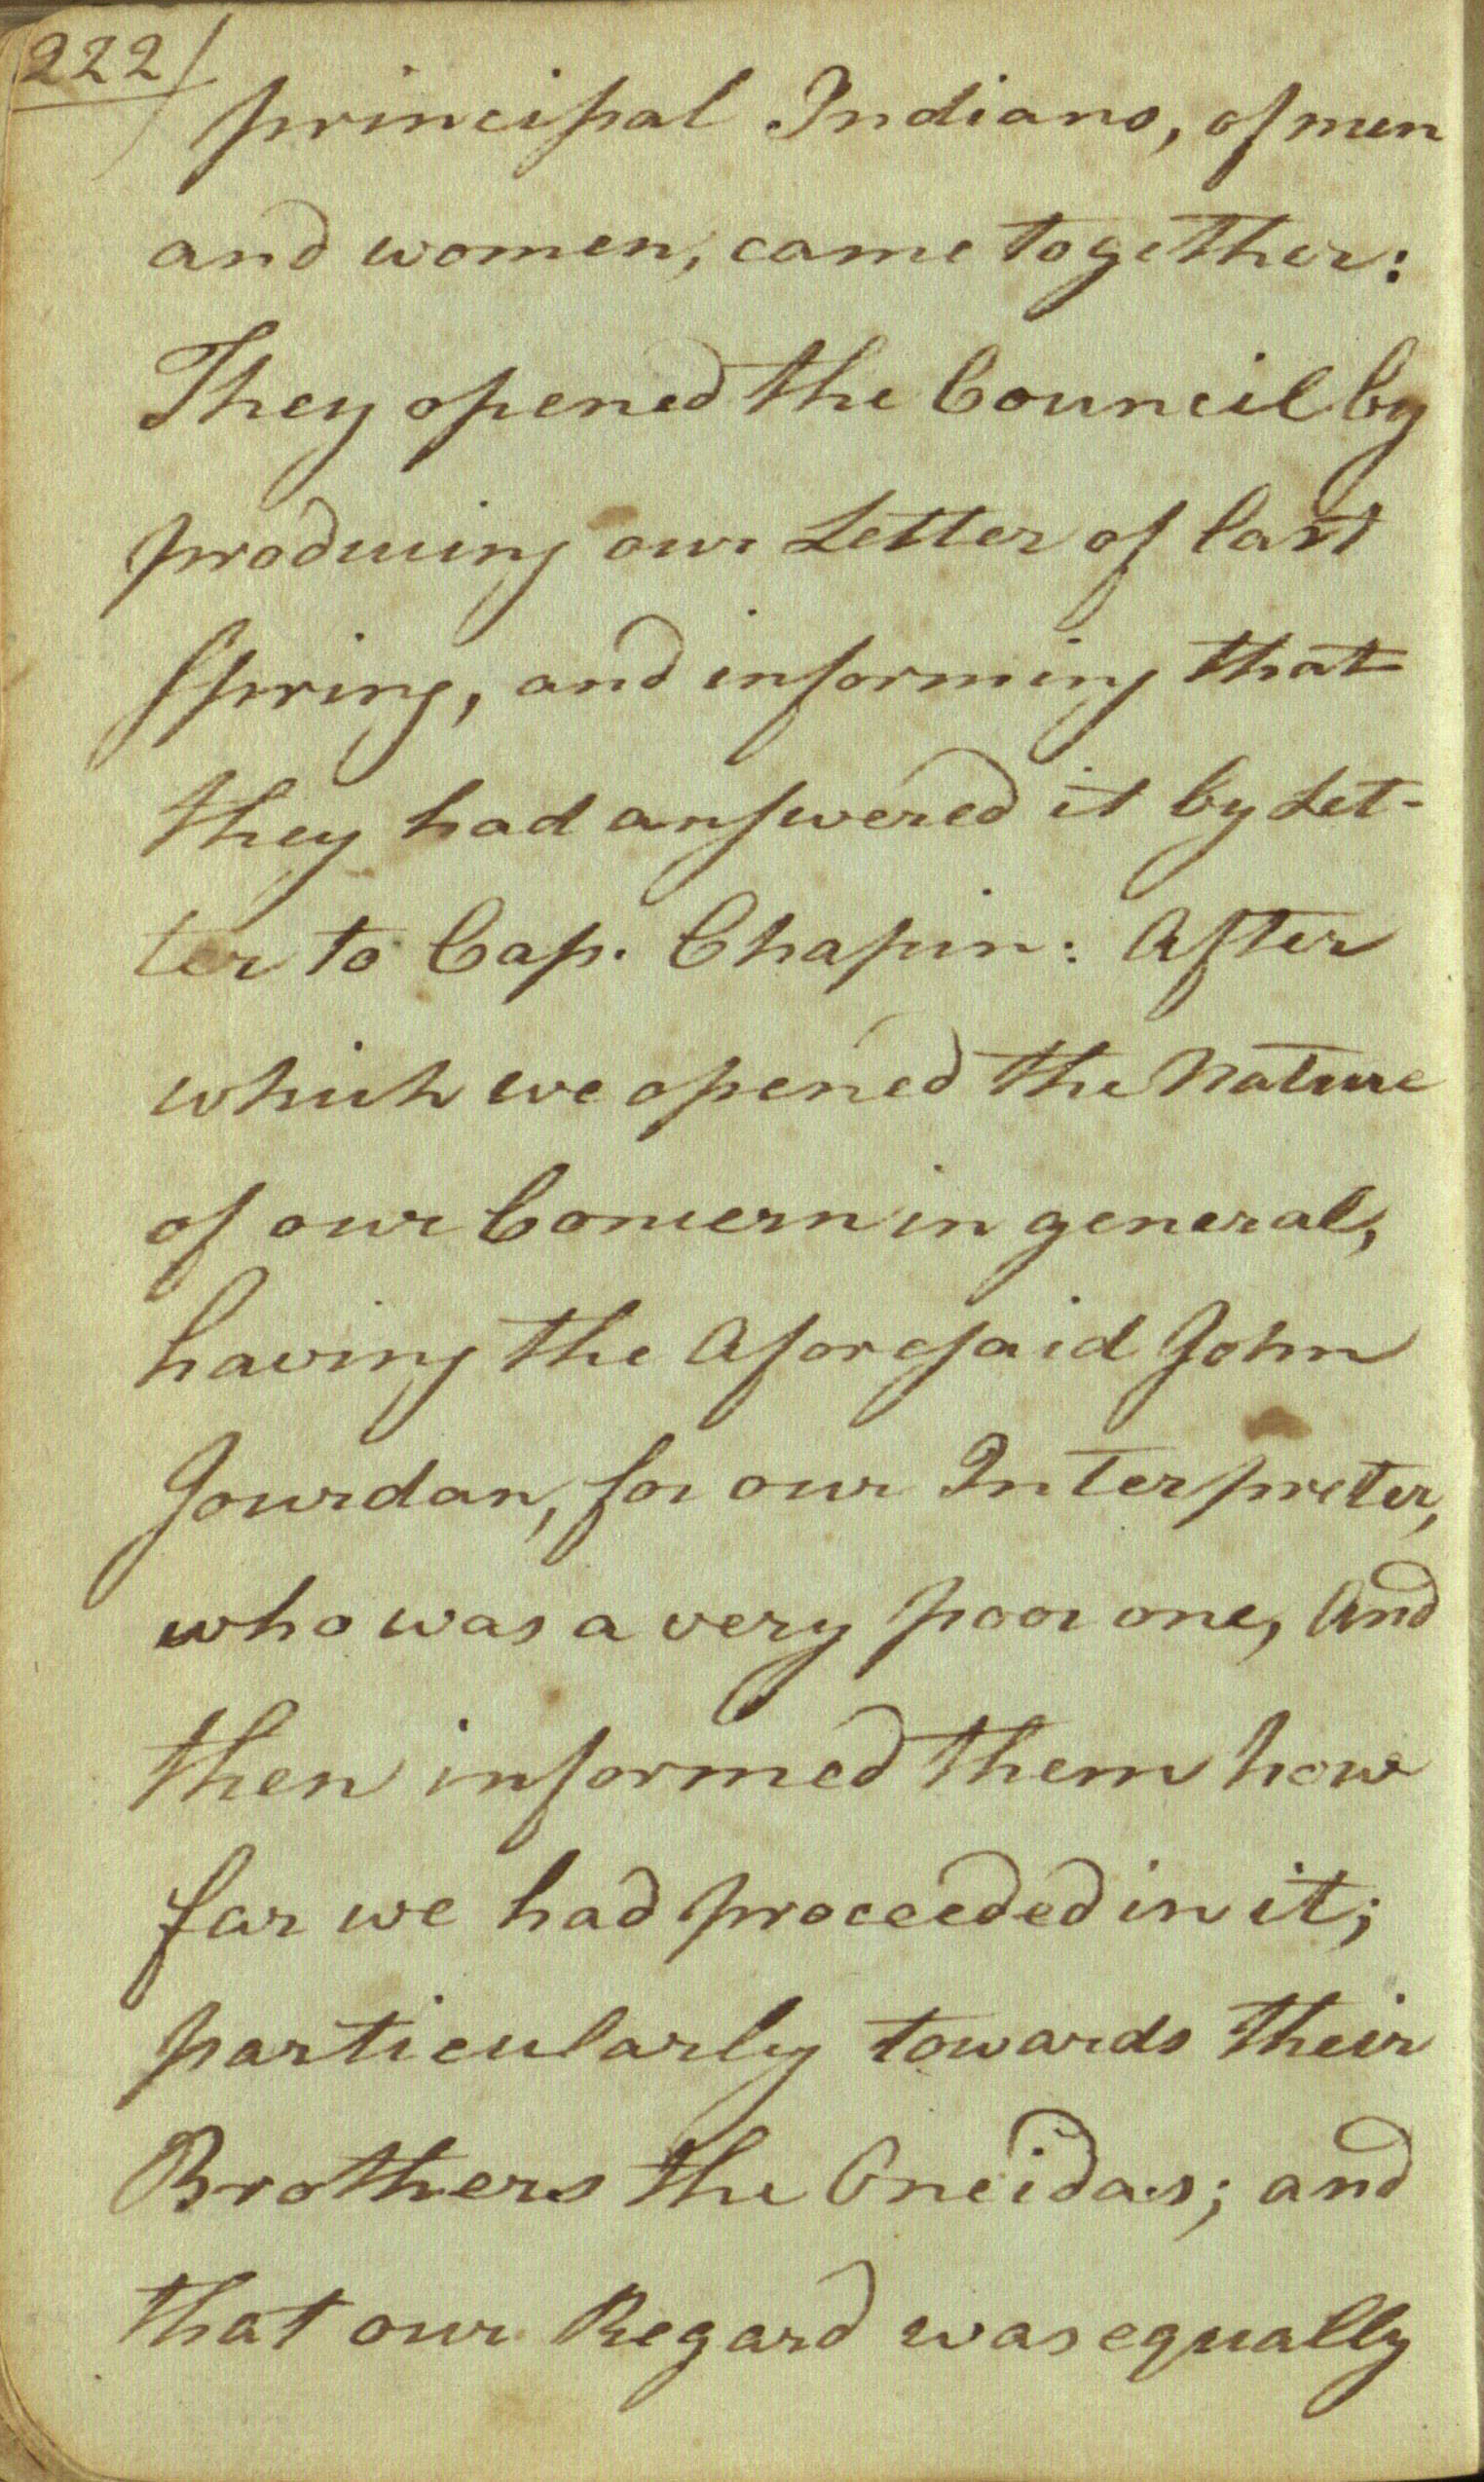 222/
principal Indians, of men
and women, came together:
They opened the Council by
producing our Letter of last
Spring, and informing that
they had answered it by Let-
ter to Cap. Chapin: After
which we opened the Nature
of our Concern in general,
having the Aforesaid John
Jourdan, for our Interpreter,
who was a very poor one, And
then informed them how
far we had proceeded in it;
particularly towards their
Brothers the Oneidas; and
that our Regard was equally